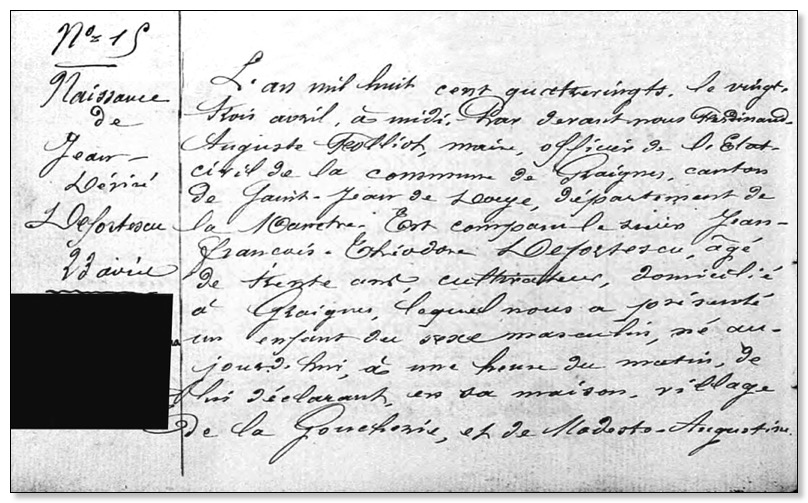 Nº 15
Naissance
de
Jean-
Désiré
Defortescu
23 avril
L'an mil huit cent quatrevingts, le vingt-
trois avril, à midi. Par devant nous Ferdinand-
Auguste Folliot, maire, officier de l'Etat-
civil de la commune de Graignes, canton
de Saint-Jean de Daye, département de
la Manche. Est comparu le sieur Jean-
François-Théodore Defortescu, âgé
de trente ans, cultivateur, domicilié
à Graignes, lequel nous a présenté
un enfant du sexe masculin, né au-
jourd'hui, à une heure du matin, de
lui déclarant, en sa maison, village
de la Goucherie, et de Modeste-Augustine